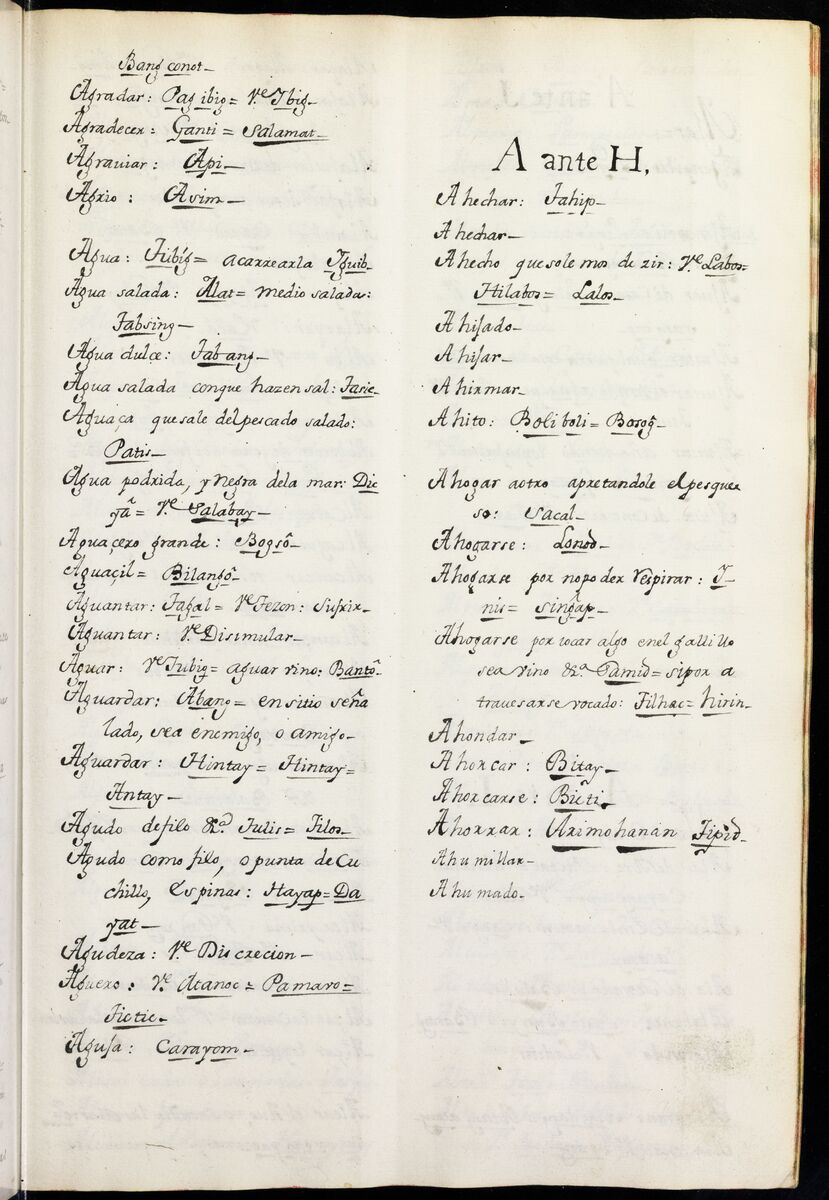 Bang̃ conot_
Agradar: Pag ibig = Vᵉ Ibig_
Agradecer: Ganti = Salamat_
Agraviar: Api_
Agrio: Asim_
Agua: Tubig = acarrearla Yguib_
Agua salada: Alat = medio salada:
Tabsing_
Agua dulçe: Tabang_
Agua salada conque hazen sal: Tasic_
Aguaça que sale del pescado salado:
Patis_
Agua podrida, y negra dela mar: Dic
yã = Vᵉ Salabay_
Aguaçero grande: Bogsô_
Aguaçil = Bilangô_
Aguantar: Tagal = Vᵉ Tezon: sufrir_
Aguantar: Vᵉ Disimular_
Aguar: Vᵉ Tubig = aguar vino: Bantô_
Aguardar: Abang = en sitio seña
lado, sea enemigo, o amigo_
Aguardar: Hintay = Hintay =
Antay_
Agudo de filo &ᵃ Tulis = Tilos_
Agudo como filo, o punta de Cu
chillo, Espinas: Hayap = Da
yat_
Agudeza: Vᵉ Discrecion_
Aguero: Vᵉ Atanoc = Pamaro =
Tictic_
Aguja: Carayom_
A ante H,
Ahechar: Tahip_
Ahechar_
Ahecho que solemos dezir: Vᵉ Labos =
Hilabos = Lalos_
Ahijado_
Ahijar_
Ahirmar_
Ahito: Boliboli = Bosog̃_
Ahogar aotro apretandole el pesque
so: Sacal_
Ahogarse: Lonod_
Ahogarse por no poder respirar: I_
nis = sing̃ap_
Ahogarse por tocar algo en el gallillo
sea vino &ᵃ Samid = si por a
travesarse vocado: Tilhac = hirin_
Ahondar_
Ahorcar: Bitay_
Ahorcarse: Bicti_
Ahorrar: Arimohanan Tipid_
Ahumillar_
Ahumado_